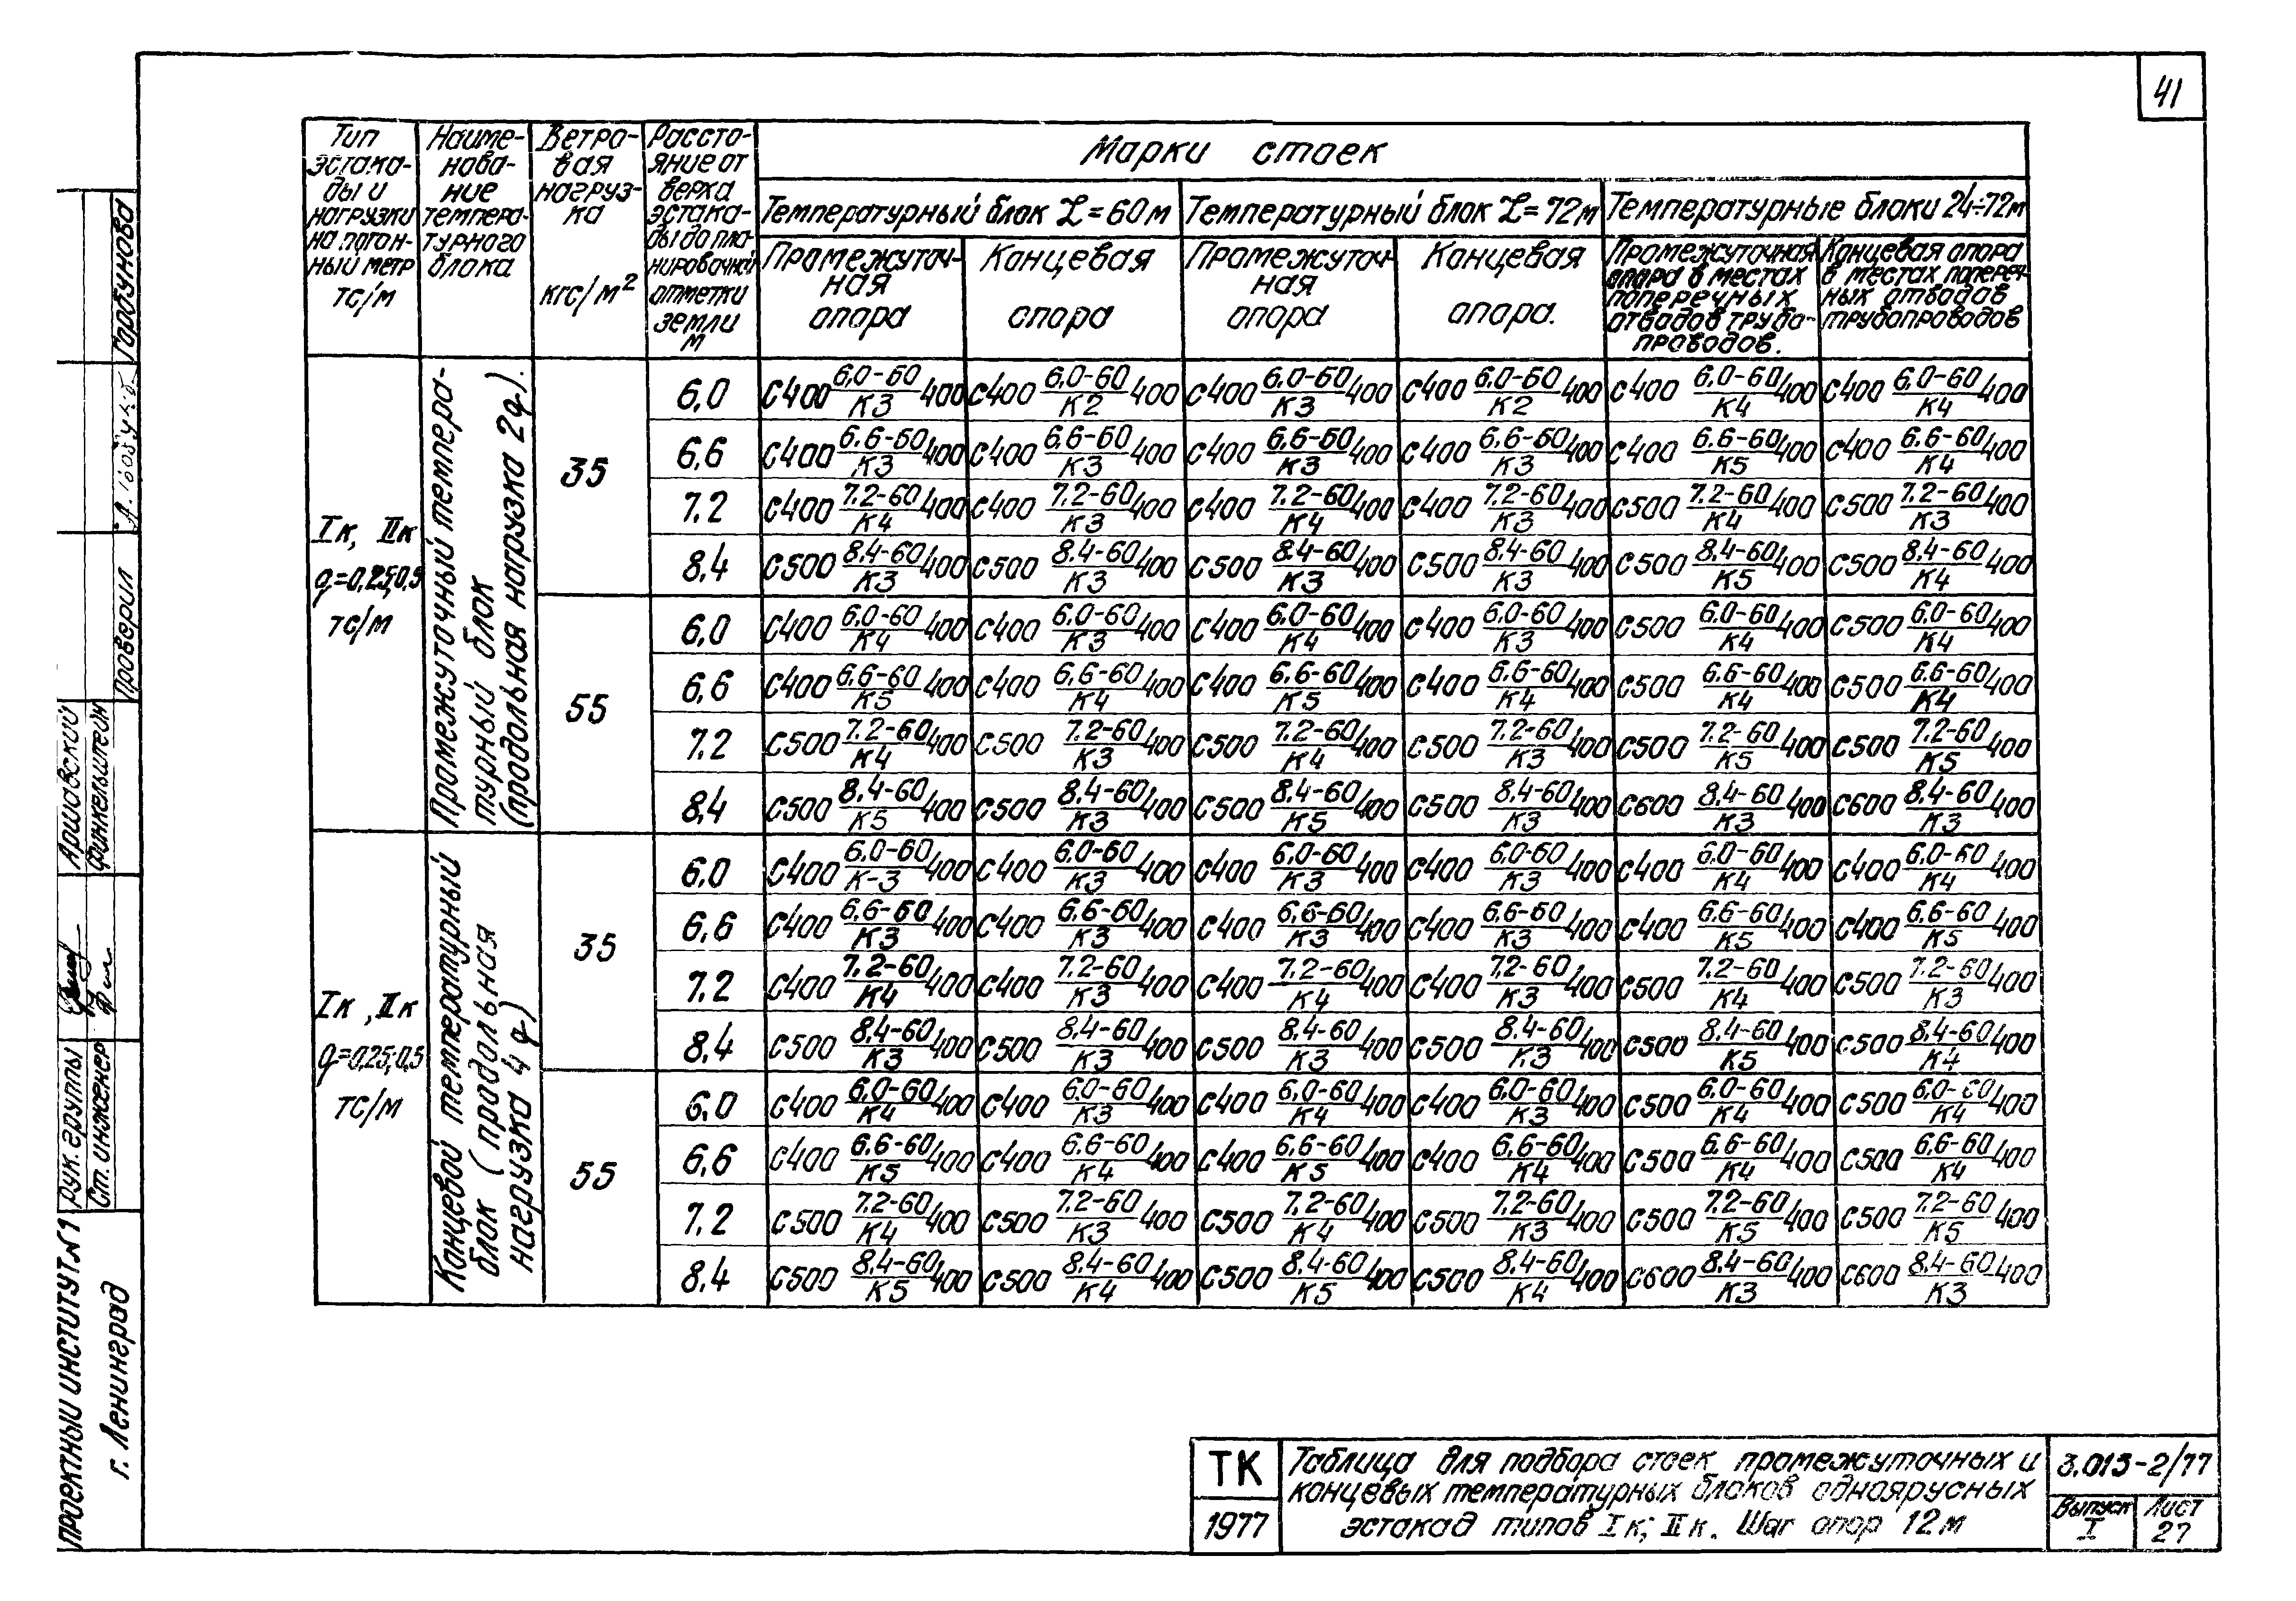 41
Тип эстака-ды и нагрузки на погон-ный метр тс/м
Наиме-нова-ние темпера-турного блока
Ветро-вая нагруз-ка кгс/м²
Рассто-яние от верха эстака-ды до пла-нировочной отметки земли м
Марки стоек
Температурный блок L=60м
Температурный блок L=72м
Температурные блоки 24÷72м
Промежуточ-ная опора
Концевая опора
Промежуточ-ная опора
Концевая опора.
Промежуточная опора в местах поперечных отводов трубо-проводов.
Концевая опора в местах попереч-ных отводов трубопроводов
Iк, IIк q=0,25;0,5 тс/м
Промежуточный темпера-турный блок (продольная нагрузка 2q).
35
6,0 С400 6.0-60/К3 400 С400 6.0-60/К2 400 С400 6.0-60/К3 400 С400 6.0-60/К2 400 С400 6.0-60/К4 400 С400 6.0-60/К4 400
6,6 С400 6.6-60/К3 400 С400 6.6-60/К3 400 С400 6.6-60/К3 400 С400 6.6-60/К3 400 С400 6.6-60/К5 400 С400 6.6-60/К4 400
7.2 С400 7.2-60/К4 400 С400 7.2-60/К3 400 С400 7.2-60/К4 400 С400 7.2-60/К3 400 С500 7.2-60/К4 400 С500 7.2-60/К3 400
8,4 С500 8.4-60/К3 400 С500 8.4-60/К3 400 С500 8.4-60/К3 400 С500 8.4-60/К3 400 С500 8.4-60/К5 400 С500 8.4-60/К4 400
55
6,0 С400 6.0-60/К4 400 С400 6.0-60/К3 400 С400 6.0-60/К4 400 С400 6.0-60/К3 400 С500 6.0-60/К4 400 С500 6.0-60/К4 400
6,6 С400 6.6-60/К5 400 С400 6.6-60/К4 400 С400 6.6-60/К5 400 С400 6.6-60/К4 400 С500 6.6-60/К4 400 С500 6.6-60/К4 400
7.2 С500 7.2-60/К4 400 С500 7.2-60/К3 400 С500 7.2-60/К4 400 С500 7.2-60/К3 400 С500 7.2-60/К5 400 С500 7.2-60/К5 400
8,4 С500 8.4-60/К5 400 С500 8.4-60/К3 400 С500 8.4-60/К5 400 С500 8.4-60/К3 400 С600 8.4-60/К3 400 С600 8.4-60/К3 400
Iк, IIк q=0,25;0,5 тс/м
Концевой температурный блок (продольная нагрузка 4q)
35
6,0 С400 6.0-60/К-3 400 С400 6.0-60/К3 400 С400 6.0-60/К3 400 С400 6.0-60/К3 400 С400 6.0-60/К4 400 С400 6.0-60/К4 400
6,6 С400 6.6-60/К3 400 С400 6.6-60/К3 400 С400 6.6-60/К3 400 С400 6.6-60/К3 400 С400 6.6-60/К5 400 С400 6.6-60/К5 400
7.2 С400 7.2-60/К4 400 С400 7.2-60/К3 400 С400 7.2-60/К4 400 С400 7.2-60/К3 400 С500 7.2-60/К4 400 С500 7.2-60/К3 400
8,4 С500 8.4-60/К3 400 С500 8.4-60/К3 400 С500 8.4-60/К3 400 С500 8.4-60/К3 400 С500 8.4-60/К5 400 С500 8.4-60/К4 400
55
6,0 С400 6.0-60/К4 400 С400 6.0-60/К3 400 С400 6.0-60/К4 400 С400 6.0-60/К3 400 С500 6.0-60/К4 400 С500 6.0-60/К4 400
6,6 С400 6.6-60/К5 400 С400 6.6-60/К4 400 С400 6.6-60/К5 400 С400 6.6-60/К4 400 С500 6.6-60/К4 400 С500 6.6-60/К4 400
7.2 С500 7.2-60/К4 400 С500 7.2-60/К3 400 С500 7.2-60/К4 400 С500 7.2-60/К3 400 С500 7.2-60/К5 400 С500 7.2-60/К5 400
8,4 С500 8.4-60/К5 400 С500 8.4-60/К4 400 С500 8.4-60/К5 400 С500 8.4-60/К4 400 С600 8.4-60/К3 400 С600 8.4-60/К3 400
Проектный институт №1
г. Ленинград
Рук. группы Аршавский
Ст. инженер Финкельштейн
Проверил Горбунова
ТК
1977
Таблица для подбора стоек промежуточных и
концевых температурных блоков одноярусных
эстакад типов Iк; IIк. Шаг опор 12м
3.015-2/77
Выпуск I
Лист 27